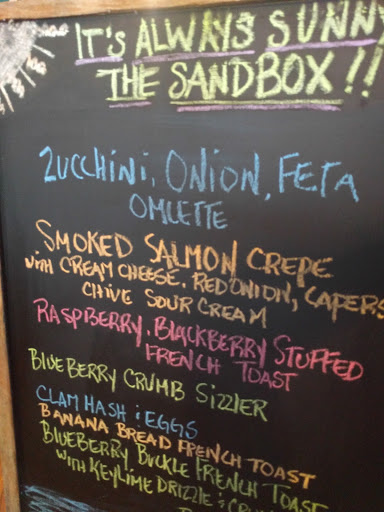 IT'S ALWAYS SUNNY
THE SANDBOX!!
ZUCCHINI, ONION, FETA
OMLETTE
SMOKED SALMON CREPE
WITH CREAM CHEESE, RED ONION, CAPERS
CHIVE SOUR CREAM
RASPBERRY, BLACKBERRY STUFFED
FRENCH TOAST
BLUEBERRY CRUMB SIZZLER
CLAM HASH & EGGS
BANANA BREAD FRENCH TOAST
BLUEBERRY BUCKLE FRENCH TOAST
WITH KEYLIME DRIZZLE &